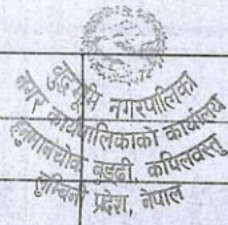 बुद्धभूमि नगरपालिका
नगर कार्यपालिकाको कार्यालय
हनुमानचोक बुड्ढी, कपिलवस्तु
लुम्बिनी प्रदेश, नेपाल